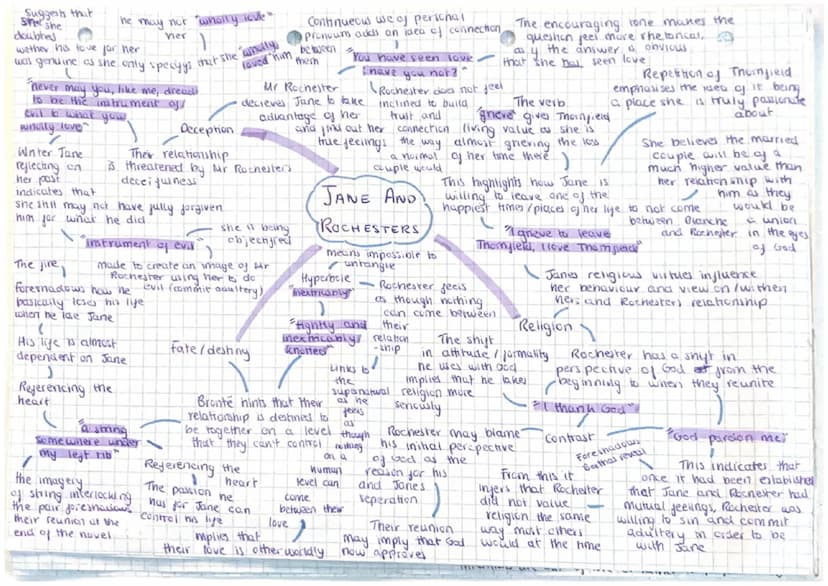 JANE AND
ROCHESTERS
Deception
Mr Rochester
decieves Jane to take
advantage of her
and find out her
true feelings
Their relationship
is threatened by Mr Rochesters
deceifulness
"never may you, like me, dread
to be the instrument of
evil to what you
wholly love"
Suggests that
she
doubted
wether his love for her
was genuine as she only specifys that she "wholly
loved" him
he may not "wholly love"
her
Writer Jane
reflecting on
her past
indicates that
she still may not have fully forgiven
him for what he did
"instrument of evil"
she is being
objectified
made to create an image of Mr
Rochester using her to do
evil (commit adultery)
"You have seen love
have you not?"
Continueous use of personal
pronoun adds an idea of connection
between
them
The encouraging tone makes the
question feel more rhetorical,
as if the answer is obvious
that she has seen love
Rochester does not feel
inclined to build
trust and
connection
the way
a normal
couple would
Religion
"I grieve to leave
Thornfield, I love Thornfield"
The verb
"grieve" gives Thornfield
living value as she is
almost grieving the loss
of her time there
This highlights how Jane is
willing to leave one of the
happiest times/places of her life to not come
between Blanche
and Rochester
Repetition of Thornfield
emphasises the idea of it being
a place she is truly passionate
about
She believes the married
couple will be of a
much higher value than
her relationship with
him as they
would be
a union
in the eyes
of God
Janes religious virtues influence
her behaviour and view on/within
her and Rochesters relationship
Rochester has a shift in
perspective of God from the
beginning to when they reunite
"I thank God"
contrast
"God pardon me"
Foreshadows
Berthas reveal
This indicates that
once it had been established
that Jane and Rochester had
mutual feelings, Rochester was
willing to sin and commit
adultery in order to be
with Jane
From this it
infers that Rochester
did not value
religion the same
way most others
would at the time
The shift
in attitude / formality
he uses with God
implies that he takes
religion more
seriously
Rochester may blame
his initial perspective
of God as the
reason for his
and Janes
seperation
Their reunion
may imply that God
now approves
Fate/destiny
"tightly and
inextricably
knotted"
Hyperbole
"inextricably"
means impossible to
untangle
Rochester feels
as though nothing
can come between
their
relation
-ship
Links to
the
supanatural
as he
feels
as
though
nothing
on a
human
level can
come
between their
love
Brontë hints that their
relationship is destined to
be together on a level
that they can't control
"a string
somewhere under
my left rib"
Referencing the
heart
The passion he
has for Jane can
control his life
implies that
their love is otherworldly
the imagery
of string interlocking
the pair foreshadows
their reunion at the
end of the novel
Referencing the
heart
His life is almost
dependent on Jane
The fire,
foreshadows how he
basically loses his life
when he lose Jane